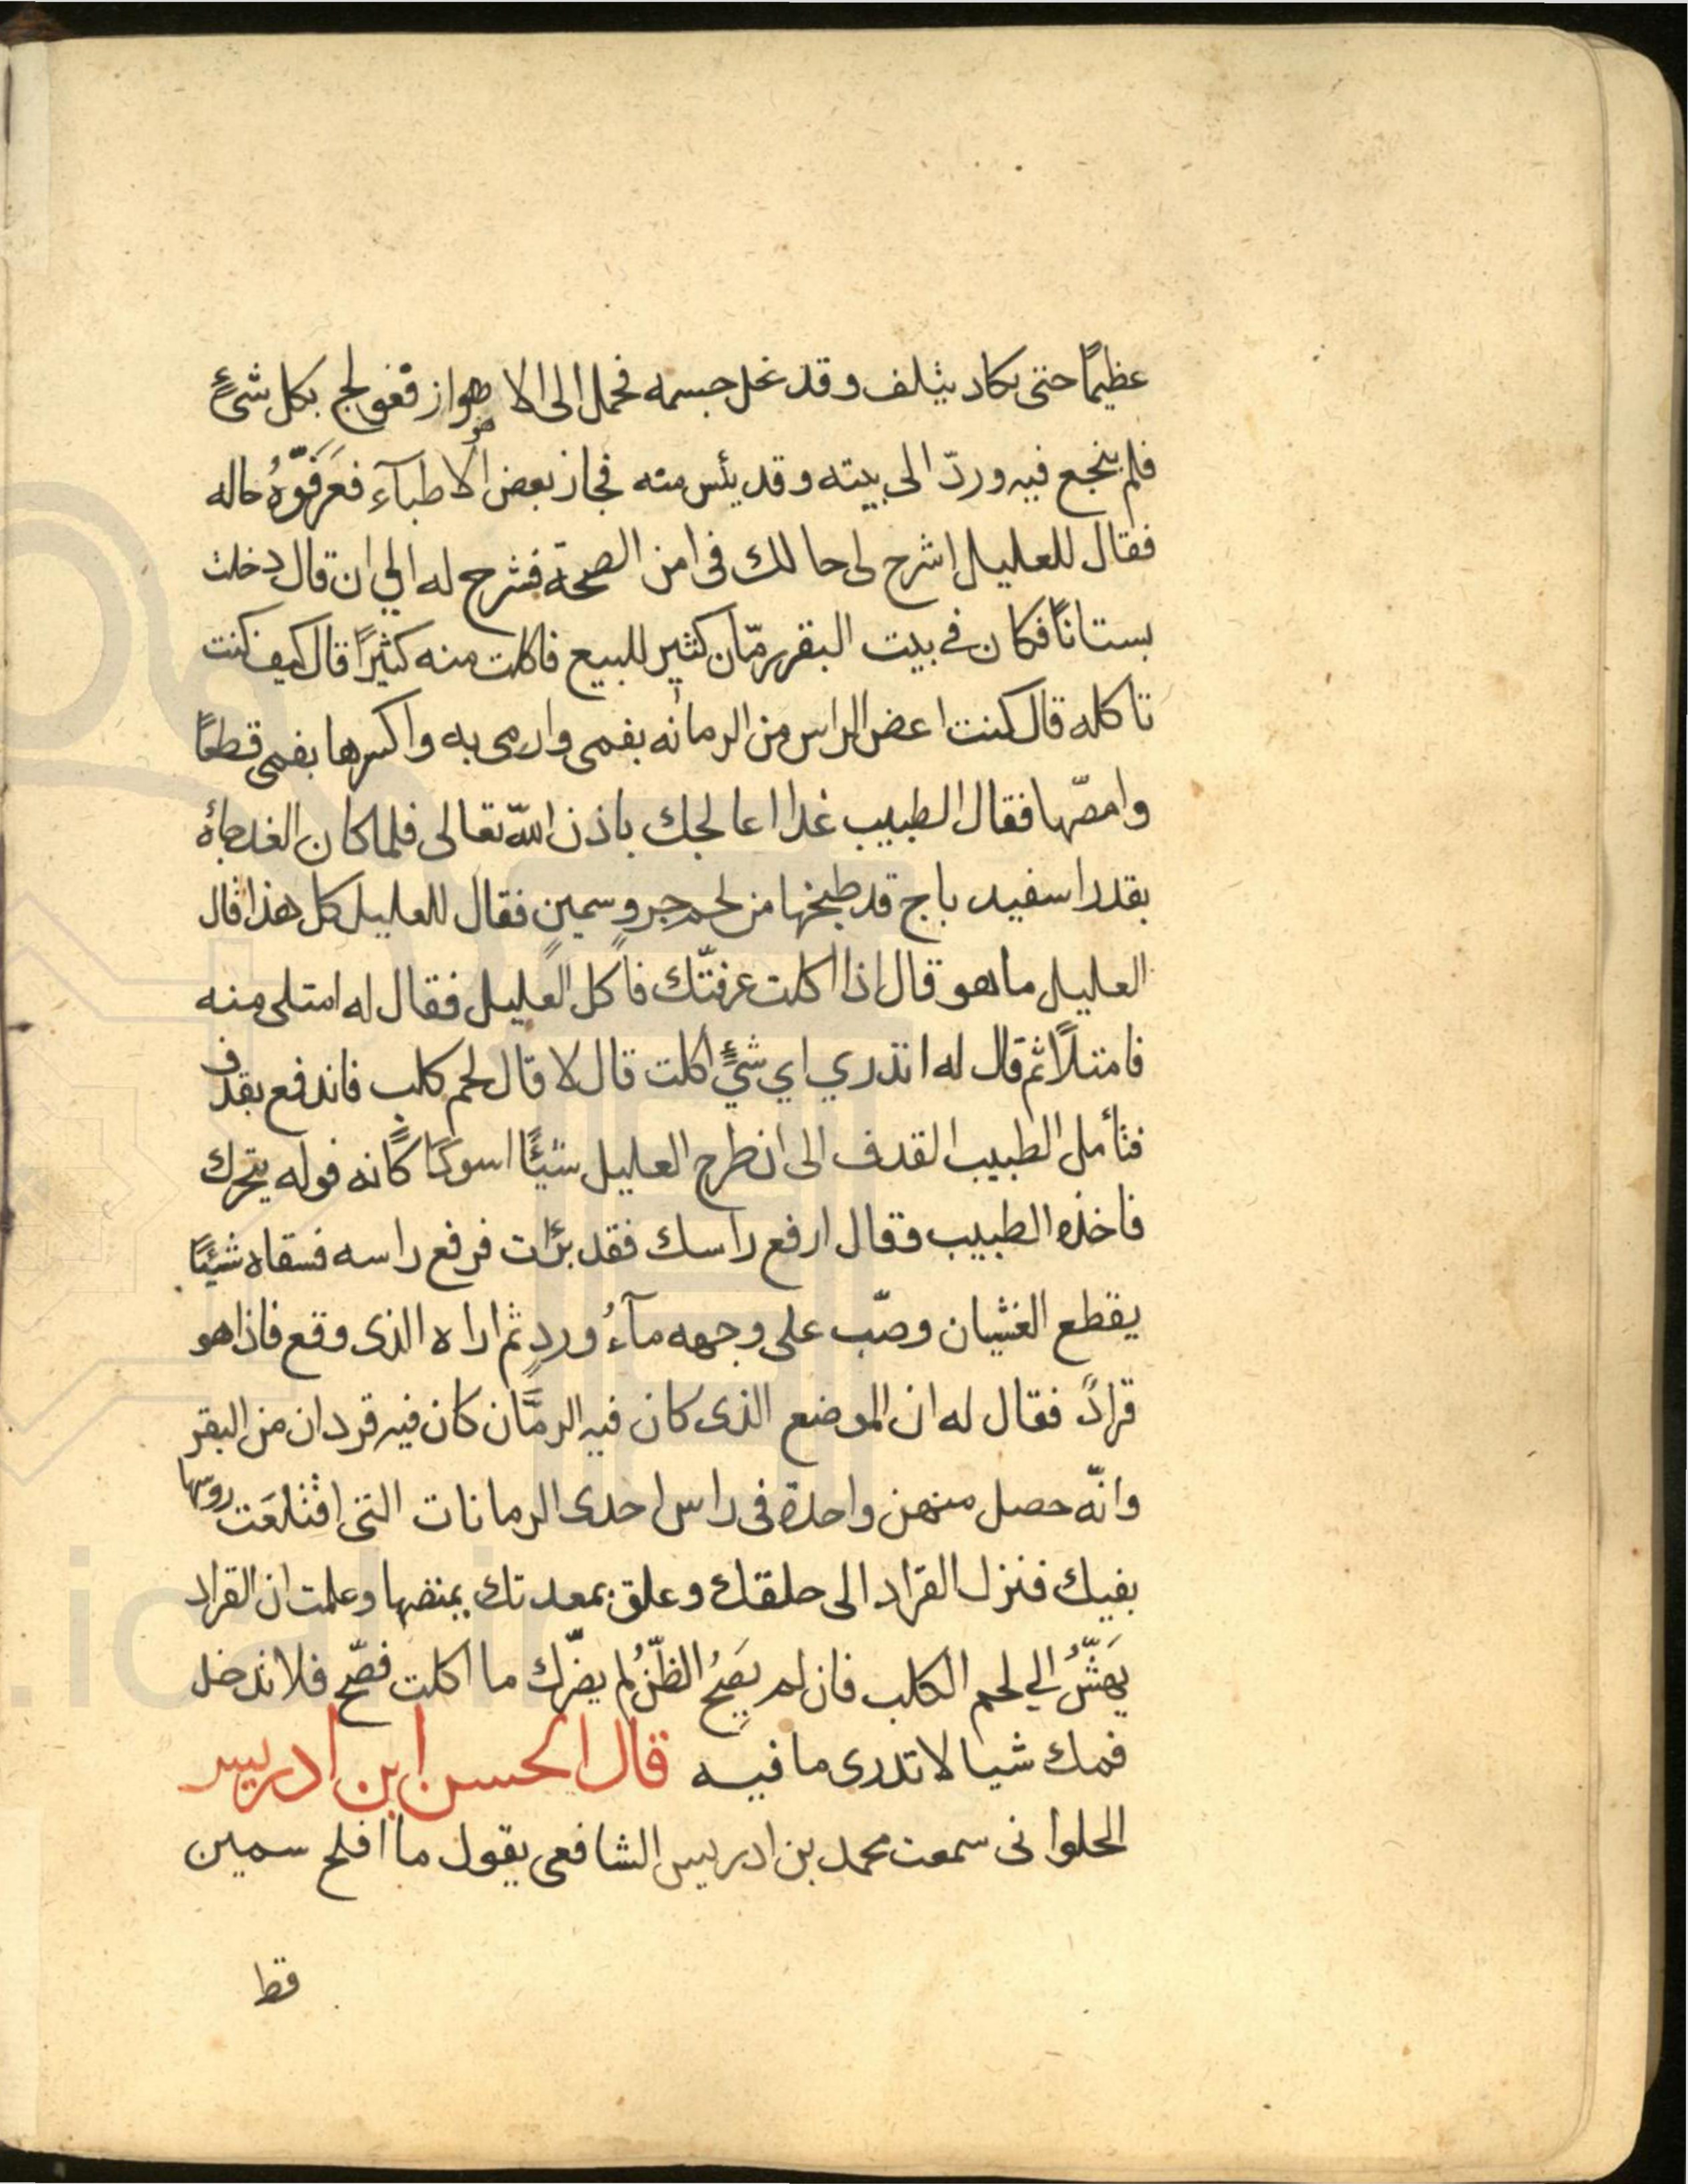 عظيمًا حتى كاد يتلف وقد نحل جسمه فحمل الى الاهواز فعولج بكل شيءٍ
فلم ينجع فيه وردّ الى بيته وقد يئس منه فجاز بعض الاطبآء فعَرَفَوّهُ حاله
فقال للعليل اشرح لى حالك فى امن الصحة فشرح له الي ان قال دخلت
بستانًا فكان في بيت البقر رمّان كثير للبيع فاكلت منه كثيرًا قال كيف كنت
تاكله قال كنت اعض الراس من الرمانه بفمى وارمى به واكسرها بفمى قطعًا
وامصّها فقال الطبيب غدا اعالجك باذن اللّه تعالى فلما كان الغد جاءه
بقدر اسفيدباج قد طبخها من لحم جرو سمين فقال للعليل كل هذا قال
العليل ما هو قال اذا اكلت عرفتّك فأكل العليل فقال له امتلى منه
فامتلأ ثم قال له اتدري اي شيءٍ اكلت قال لا قال لحم كلب فاندفع يقذف
فتأمل الطبيب القذف الى ان طرح العليل شيئًا اسودًا كأنه فوله يتحرك
فاخذه الطبيب وقال ارفع راسك فقد برأت فرفع راسه فسقاه شيئًا
يقطع الغثيان وصّب على وجهه مآءُ وردٍ ثم اراه الذى وقع فاذا هو
قرادً فقال له ان الموضع الذى كان فيه الرمَّان كان فيه قردان من البقر
وانّه حصل منهن واحدة فى راس احدى الرمانات التى اقتلعَت روسها
بفيك فنزل القراد الى حلقك وعلق بمعدتك يمتصها وعلمت ان القراد
يَهَشّ الي لحم الكلب فان لم يَصِحُ الظنُ لم يضرّك ما اكلت فصّح فلا تدخل
فمك شيا لا تدرى ما فيه قال الحسن ابن ادريس
الحلوانى سمعت محمد بن ادريس الشافعى يقول ما افلح سمين
قط